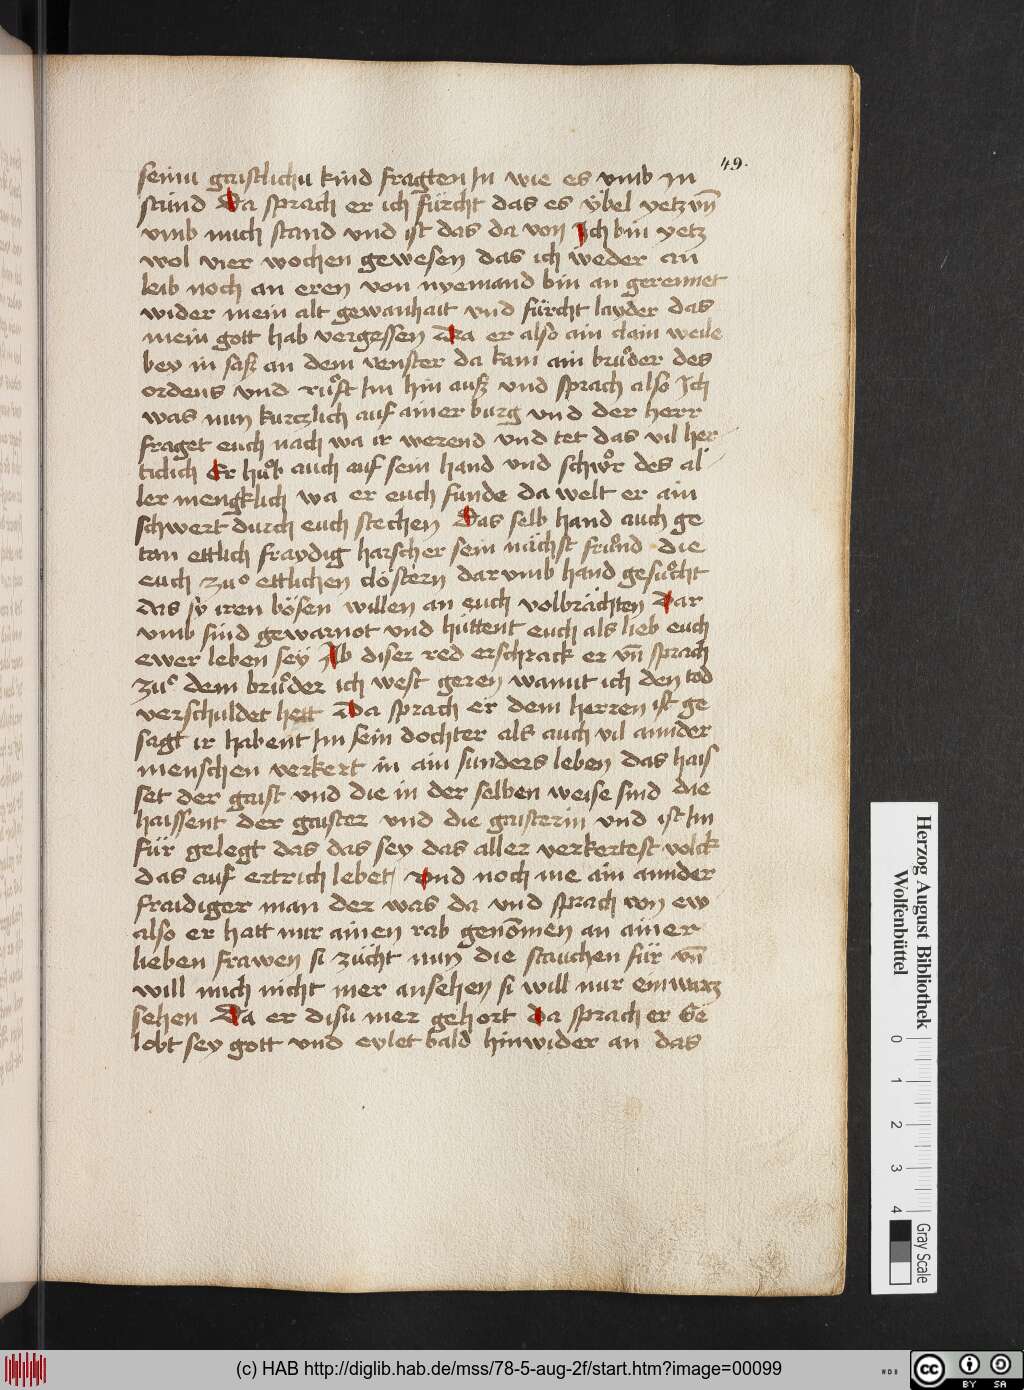 49.
seinu gaistlichu kind fragten In wie es vmb in
stünd Da sprach er ich fürcht das es v̈bel yetz vn̄
vmb mich stand vnd ist das da von Ich bin yetz
wol vier wochen gewesen das ich weder an
leib noch an eren von nyemand bin an gerennet
wider mein alt gewanhait vnd fürcht layder das
mein gott hab vergessen Da er also ain clain weile
bey in saß an dem venster da kam ain brůder des
ordens vnd růft Im hin auß vnd sprach also Ich
was nun kurczlich auf ainer burg vnd der herr
fraget euch nach wa ir werend vnd tet das vil her
ticlich Er hůb auch auf sein hand vnd schwůr des al
ler mengklich wa er euch funde da welt er ain
schwert durch euch stechen Das selb hand auch ge
tan ettlich fraydig harscher sein nächst frůnd die
euch zů ettlichen clöstern dar vmb hand gesůcht
das sÿ iren bösen willen an euch volbrächten Dar
vmb sind gewarnot vnd hüttent euch als lieb euch
ewer leben sey Ab diser red erschrack er vn̄ sprach
zů dem brůder ich west geren wamit ich den tod
verschuldet hett Da sprach er dem herren ist ge
sagt ir habent Im sein dochter als auch vil annder
menschen verkert in ain sunders leben das hais
set der gaist vnd die in der selben weise sind die
haissent der gaister vnd die gaisterin vnd ist Im
für gelegt das das sey das aller verkertest volck
das auf ertrich lebet vnd noch me ain annder
fraidiger man der was da vnd sprach von ew
also er hatt mir ainen rab genōmen an ainer
lieben frawen si zücht nun die stauchen für vn̄
will mich nicht mer ansehen si will nur einwartz
sehen Da er disu mer gehort da sprach er Ge
lobt sey gott vnd eylet bald hinwider an das
Herzog August Bibliothek
Wolfenbüttel
0 1 2 3 4
Gray Scale
(c) HAB http://diglib.hab.de/mss/78-5-aug-2f/start.htm?image=00099
WDB
cc BY SA